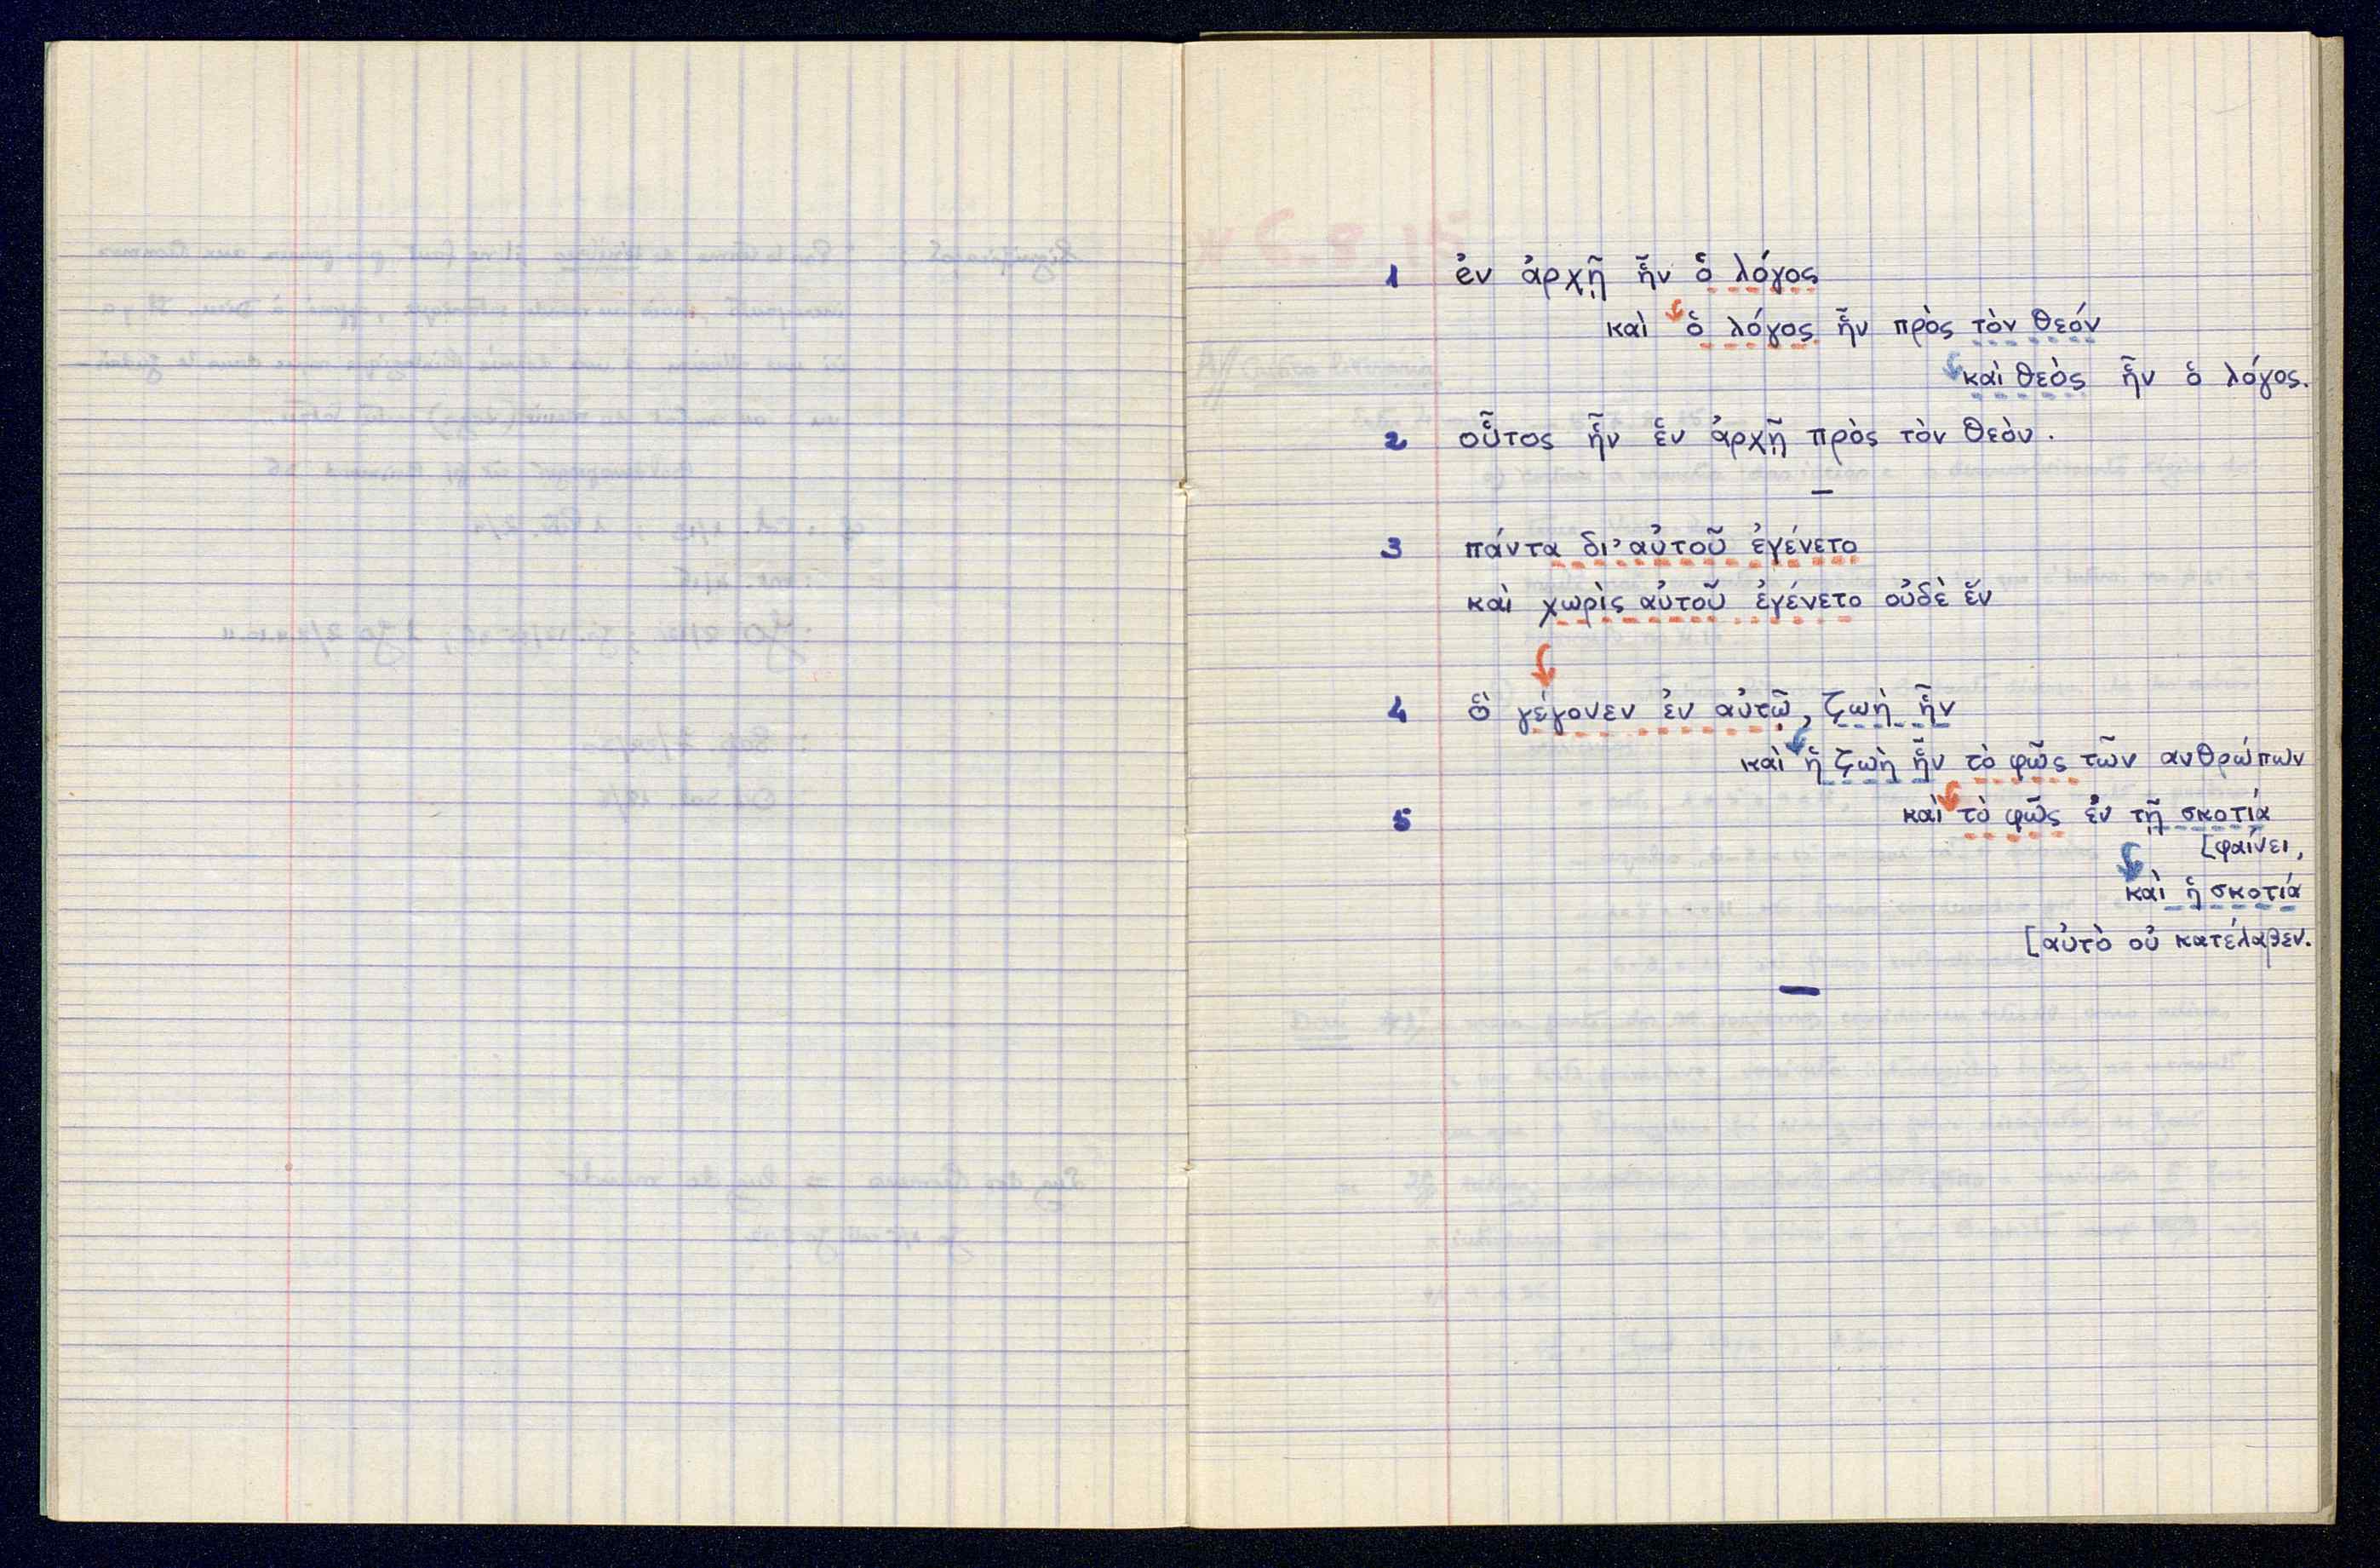 1 ἐν ἀρχῇ ἦν ὁ λόγος
καὶ ὁ λόγος ἦν πρὸς τὸν θεόν
καὶ θεὸς ἦν ὁ λόγος.
2 οὗτος ἦν ἐν ἀρχῇ πρὸς τὸν θεὸν.
—
3 πάντα δι’ αὐτοῦ ἐγένετο
καὶ χωρὶς αὐτοῦ ἐγένετο οὐδὲ ἕν
4 ὃ γέγονεν ἐν αὐτῷ, ζωὴ ἦν
καὶ ἡ ζωὴ ἦν τὸ φῶς τῶν ανθρώπων
5 καὶ τὸ φῶς ἐν τῇ σκοτίᾳ
[φαίνει,
καὶ ἡ σκοτία
[αὐτὸ οὐ κατέλαβεν.
—